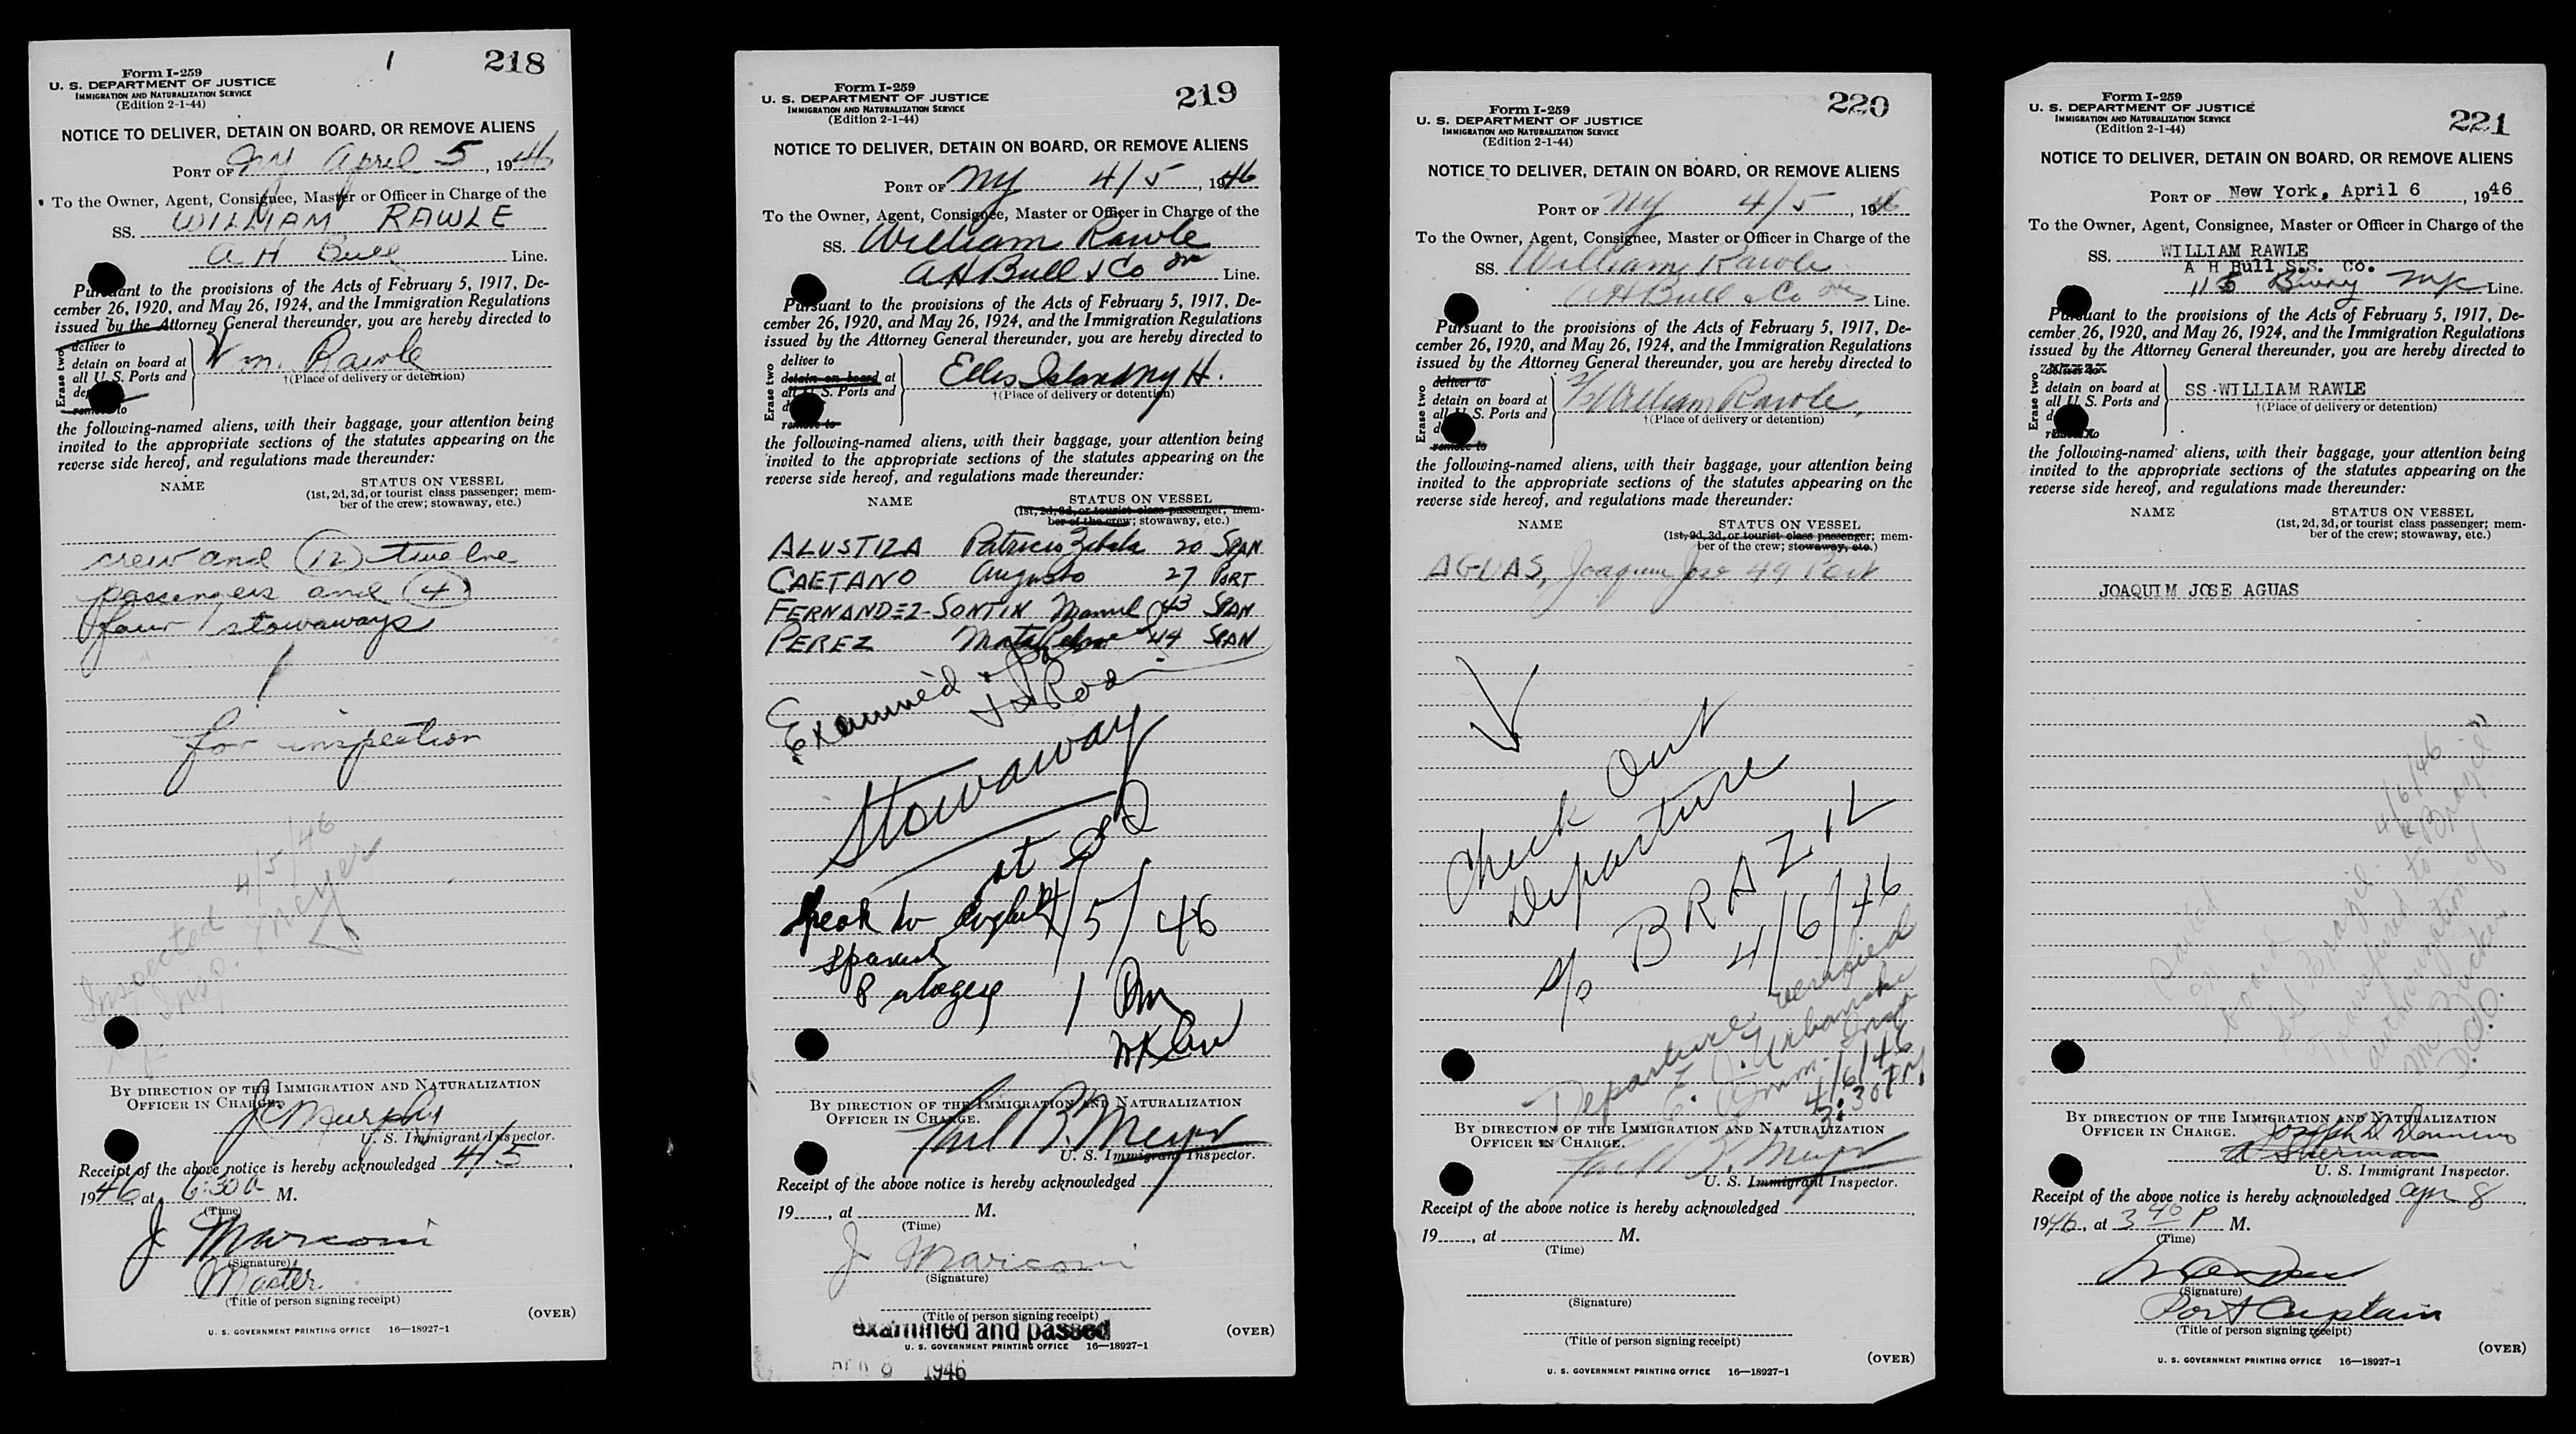 1
218
Form I-259
U. S. DEPARTMENT OF JUSTICE
IMMIGRATION AND NATURALIZATION SERVICE
(Edition 2-1-44)
NOTICE TO DELIVER, DETAIN ON BOARD, OR REMOVE ALIENS
PORT OF NY April 5, 1946
To the Owner, Agent, Consignee, Master or Officer in Charge of the
SS. WILLIAM RAWLE
A H Bull Line.
Pursuant to the provisions of the Acts of February 5, 1917, De-
cember 26, 1920, and May 26, 1924, and the Immigration Regulations
issued by the Attorney General thereunder, you are hereby directed to
Erase two
deliver to
detain on board at
all U.S. Ports and
remove to
Wm. Rawle
†(Place of delivery or detention)
the following-named aliens, with their baggage, your attention being
invited to the appropriate sections of the statutes appearing on the
reverse side hereof, and regulations made thereunder:
NAME STATUS ON VESSEL
(1st, 2d, 3d, or tourist class passenger; mem-
ber of the crew; stowaway, etc.)
crew and (12) twelve
passengers and (4)
four stowaways
for inspection
Inspected 4/5/46
Insp. Meyer
BY DIRECTION OF THE IMMIGRATION AND NATURALIZATION
OFFICER IN CHARGE.
J Murphy
U. S. Immigrant Inspector.
Receipt of the above notice is hereby acknowledged 4/5,
1946, at 6:30 a M.
(Time)
J Marconi
(Signature)
Master
(Title of person signing receipt)
(OVER)
U. S. GOVERNMENT PRINTING OFFICE 16—18927-1
219
Form I-259
U. S. DEPARTMENT OF JUSTICE
IMMIGRATION AND NATURALIZATION SERVICE
(Edition 2-1-44)
NOTICE TO DELIVER, DETAIN ON BOARD, OR REMOVE ALIENS
PORT OF NY 4/5, 1946
To the Owner, Agent, Consignee, Master or Officer in Charge of the
SS. William Rawle
A H Bull & Co Line.
Pursuant to the provisions of the Acts of February 5, 1917, De-
cember 26, 1920, and May 26, 1924, and the Immigration Regulations
issued by the Attorney General thereunder, you are hereby directed to
Erase two
deliver to
detain on board at
all U.S. Ports and
remove to
Ellis Island NY H.
†(Place of delivery or detention)
the following-named aliens, with their baggage, your attention being
invited to the appropriate sections of the statutes appearing on the
reverse side hereof, and regulations made thereunder:
NAME STATUS ON VESSEL
(1st, 2d, 3d, or tourist class passenger; mem-
ber of the crew; stowaway, etc.)
ALUSTIZA Patricio 20 SPAN
CAETANO Augusto 27 PORT
FERNANDEZ-SONTIN Manuel 43 SPAN
PEREZ 44 SPAN
Examined
Stowaway
at
Speak no English 4/5/46
Spanish
1 Pm
BY DIRECTION OF THE IMMIGRATION AND NATURALIZATION
OFFICER IN CHARGE.
Paul B. Meyer
U. S. Immigrant Inspector.
Receipt of the above notice is hereby acknowledged
19....., at M.
(Time)
J Marconi
(Signature)
(Title of person signing receipt)
examined and passed
(OVER)
U. S. GOVERNMENT PRINTING OFFICE 16—18927-1
1946
220
Form I-259
U. S. DEPARTMENT OF JUSTICE
IMMIGRATION AND NATURALIZATION SERVICE
(Edition 2-1-44)
NOTICE TO DELIVER, DETAIN ON BOARD, OR REMOVE ALIENS
PORT OF NY 4/5, 1946
To the Owner, Agent, Consignee, Master or Officer in Charge of the
SS. William Rawle
A H Bull & Co Line.
Pursuant to the provisions of the Acts of February 5, 1917, De-
cember 26, 1920, and May 26, 1924, and the Immigration Regulations
issued by the Attorney General thereunder, you are hereby directed to
Erase two
deliver to
detain on board at
all U.S. Ports and
remove to
S/S William Rawle,
†(Place of delivery or detention)
the following-named aliens, with their baggage, your attention being
invited to the appropriate sections of the statutes appearing on the
reverse side hereof, and regulations made thereunder:
NAME STATUS ON VESSEL
(1st, 2d, 3d, or tourist class passenger; mem-
ber of the crew; stowaway, etc.)
AGUAS, Joaquim Jose 49 Port
Check Out
Departure
S/S BRAZIL
4/6/46
Departure verified
E. J. Urbanski
Imm. Insp.
4/6/46
3:30 P.M.
BY DIRECTION OF THE IMMIGRATION AND NATURALIZATION
OFFICER IN CHARGE.
Paul B. Meyer
U. S. Immigrant Inspector.
Receipt of the above notice is hereby acknowledged
19....., at M.
(Time)
(Signature)
(Title of person signing receipt)
(OVER)
U. S. GOVERNMENT PRINTING OFFICE 16—18927-1
221
Form I-259
U. S. DEPARTMENT OF JUSTICE
IMMIGRATION AND NATURALIZATION SERVICE
(Edition 2-1-44)
NOTICE TO DELIVER, DETAIN ON BOARD, OR REMOVE ALIENS
PORT OF New York, April 6, 1946
To the Owner, Agent, Consignee, Master or Officer in Charge of the
SS. WILLIAM RAWLE
A H Bull S.S. Co.
115 Bway NYC Line.
Pursuant to the provisions of the Acts of February 5, 1917, De-
cember 26, 1920, and May 26, 1924, and the Immigration Regulations
issued by the Attorney General thereunder, you are hereby directed to
Erase two
deliver to
detain on board at
all U.S. Ports and
SS WILLIAM RAWLE
†(Place of delivery or detention)
the following-named aliens, with their baggage, your attention being
invited to the appropriate sections of the statutes appearing on the
reverse side hereof, and regulations made thereunder:
NAME STATUS ON VESSEL
(1st, 2d, 3d, or tourist class passenger; mem-
ber of the crew; stowaway, etc.)
JOAQUIM JOSE AGUAS
Sailed
on
board
SS Brazil 4/6/46
Transferred to "Brazil"
authorization of
D.O.
BY DIRECTION OF THE IMMIGRATION AND NATURALIZATION
OFFICER IN CHARGE.
Joseph D
A Sherman
U. S. Immigrant Inspector.
Receipt of the above notice is hereby acknowledged Apr 8,
1946, at 3 40 P M.
(Time)
(Signature)
Port Captain
(Title of person signing receipt)
(OVER)
U. S. GOVERNMENT PRINTING OFFICE 16—18927-1